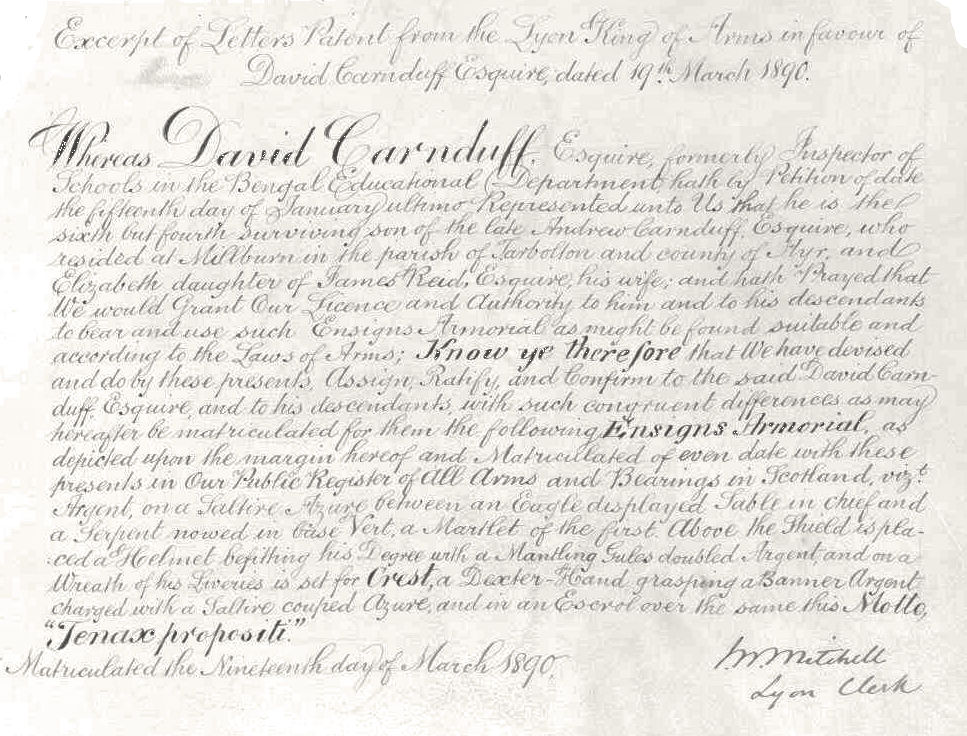 Excerpt of Letters Patent from the Lyon King of Arms in favour of
David Carnduff Esquire, dated 19th March 1890.
Whereas David Carnduff, Esquire, formerly Inspector of
Schools in the Bengal Educational Department, hath by Petition of date
the fifteenth day of January ultimo Represented unto Us that he is the
sixth but fourth surviving son of the late Andrew Carnduff, Esquire, who
resided at Millburn in the parish of Tarbolton and county of Ayr, and
Elizabeth daughter of James Reid, Esquire, his wife; and hath Prayed that
We would Grant Our Licence and Authority to him and to his descendants
to bear and use such Ensigns Armorial as might be found suitable and
according to the Laws of Arms; Know ye therefore that We have devised
and do by these presents, Assign, Ratify, and Confirm to the said David Carn-
duff, Esquire, and to his descendants, with such congruent differences as may
hereafter be matriculated for them the following Ensigns Armorial, as
depicted upon the margin hereof and Matriculated of even date with these
presents in Our Public Register of All Arms and Bearings in Scotland, vizt.
Argent, on a Saltire Azure between an Eagle displayed Sable in chief and
a Serpent nowed in base Vert, a Martlet of the first. Above the Shield is pla-
ced a Helmet befitting his Degree with a Mantling Gules doubled Argent, and on a
Wreath of his Liveries is set for Crest, a Dexter-Hand grasping a Banner Argent
charged with a Saltire couped Azure, and in an Escrol over the same this Motto,
"Tenax propositi."
Matriculated the Nineteenth day of March 1890.
Mitchell
Lyon Clerk